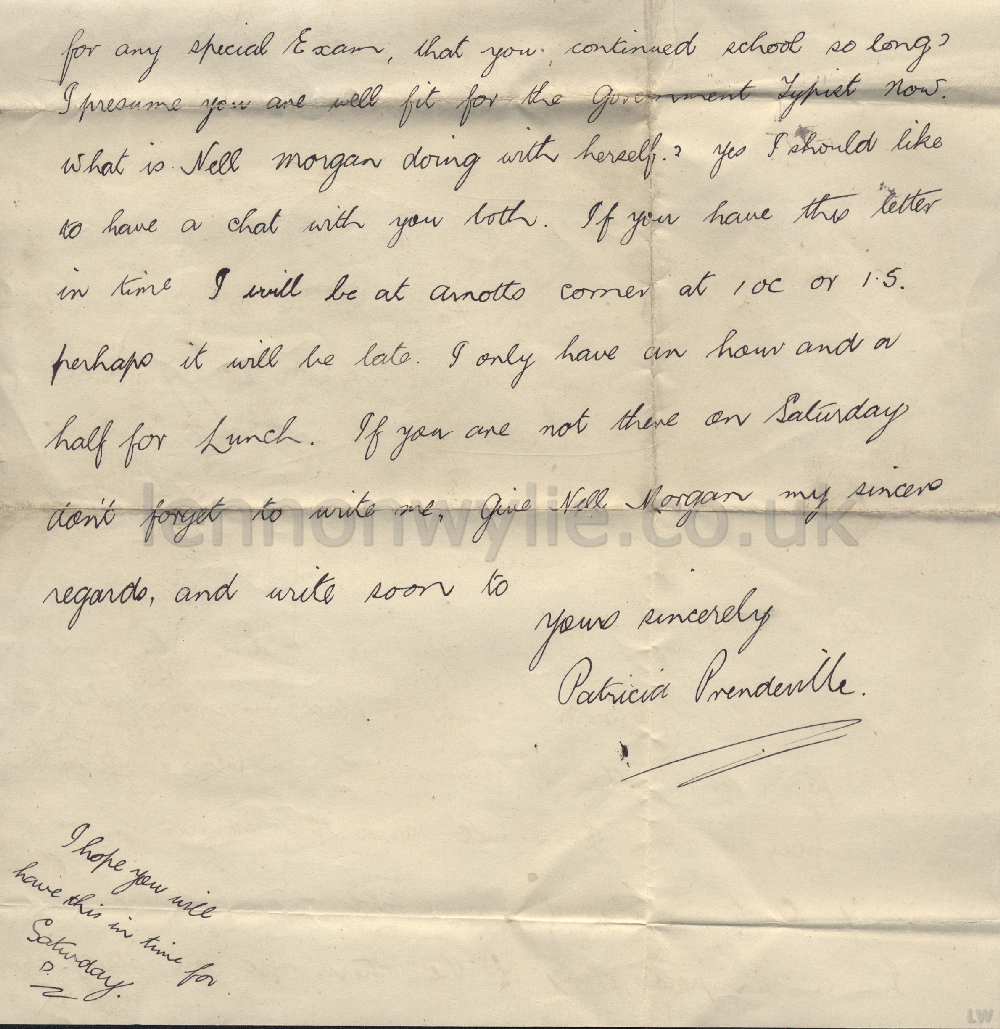 for any special Exam, that you continued school so long?
I presume you are well fit for the Government Typist now.
What is Nell Morgan doing with herself.? yes I should like
to have a chat with you both. If you have this letter
in time I will be at Arnotts corner at 1 oc or 1.5.
perhaps it will be late. I only have an hour and a
half for Lunch. If you are not there on Saturday
don't forget to write me, Give Nell Morgan my sincere
regards, and write soon to
yours sincerely
Patricia Prendeville.
I hope you will
have this in time for
Saturday.
P.
lennonwylie.co.uk
LW